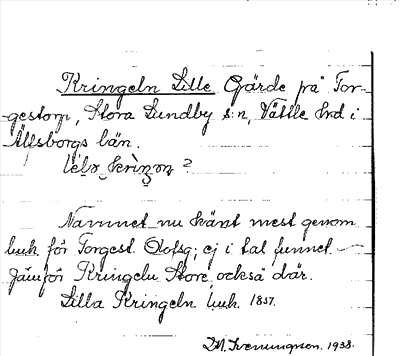 Kringeln Lille Gärde på Tor-
gestorp, Stora Lundby s:n, Vättle hrd i
Älfsborgs län.
Namnet nu känt mest genom
huk för Torgest. Olofsg; ej i tal funnet.
Jämför Kringeln Store också där.
Lilla Kringeln huk. 1857.
1938.